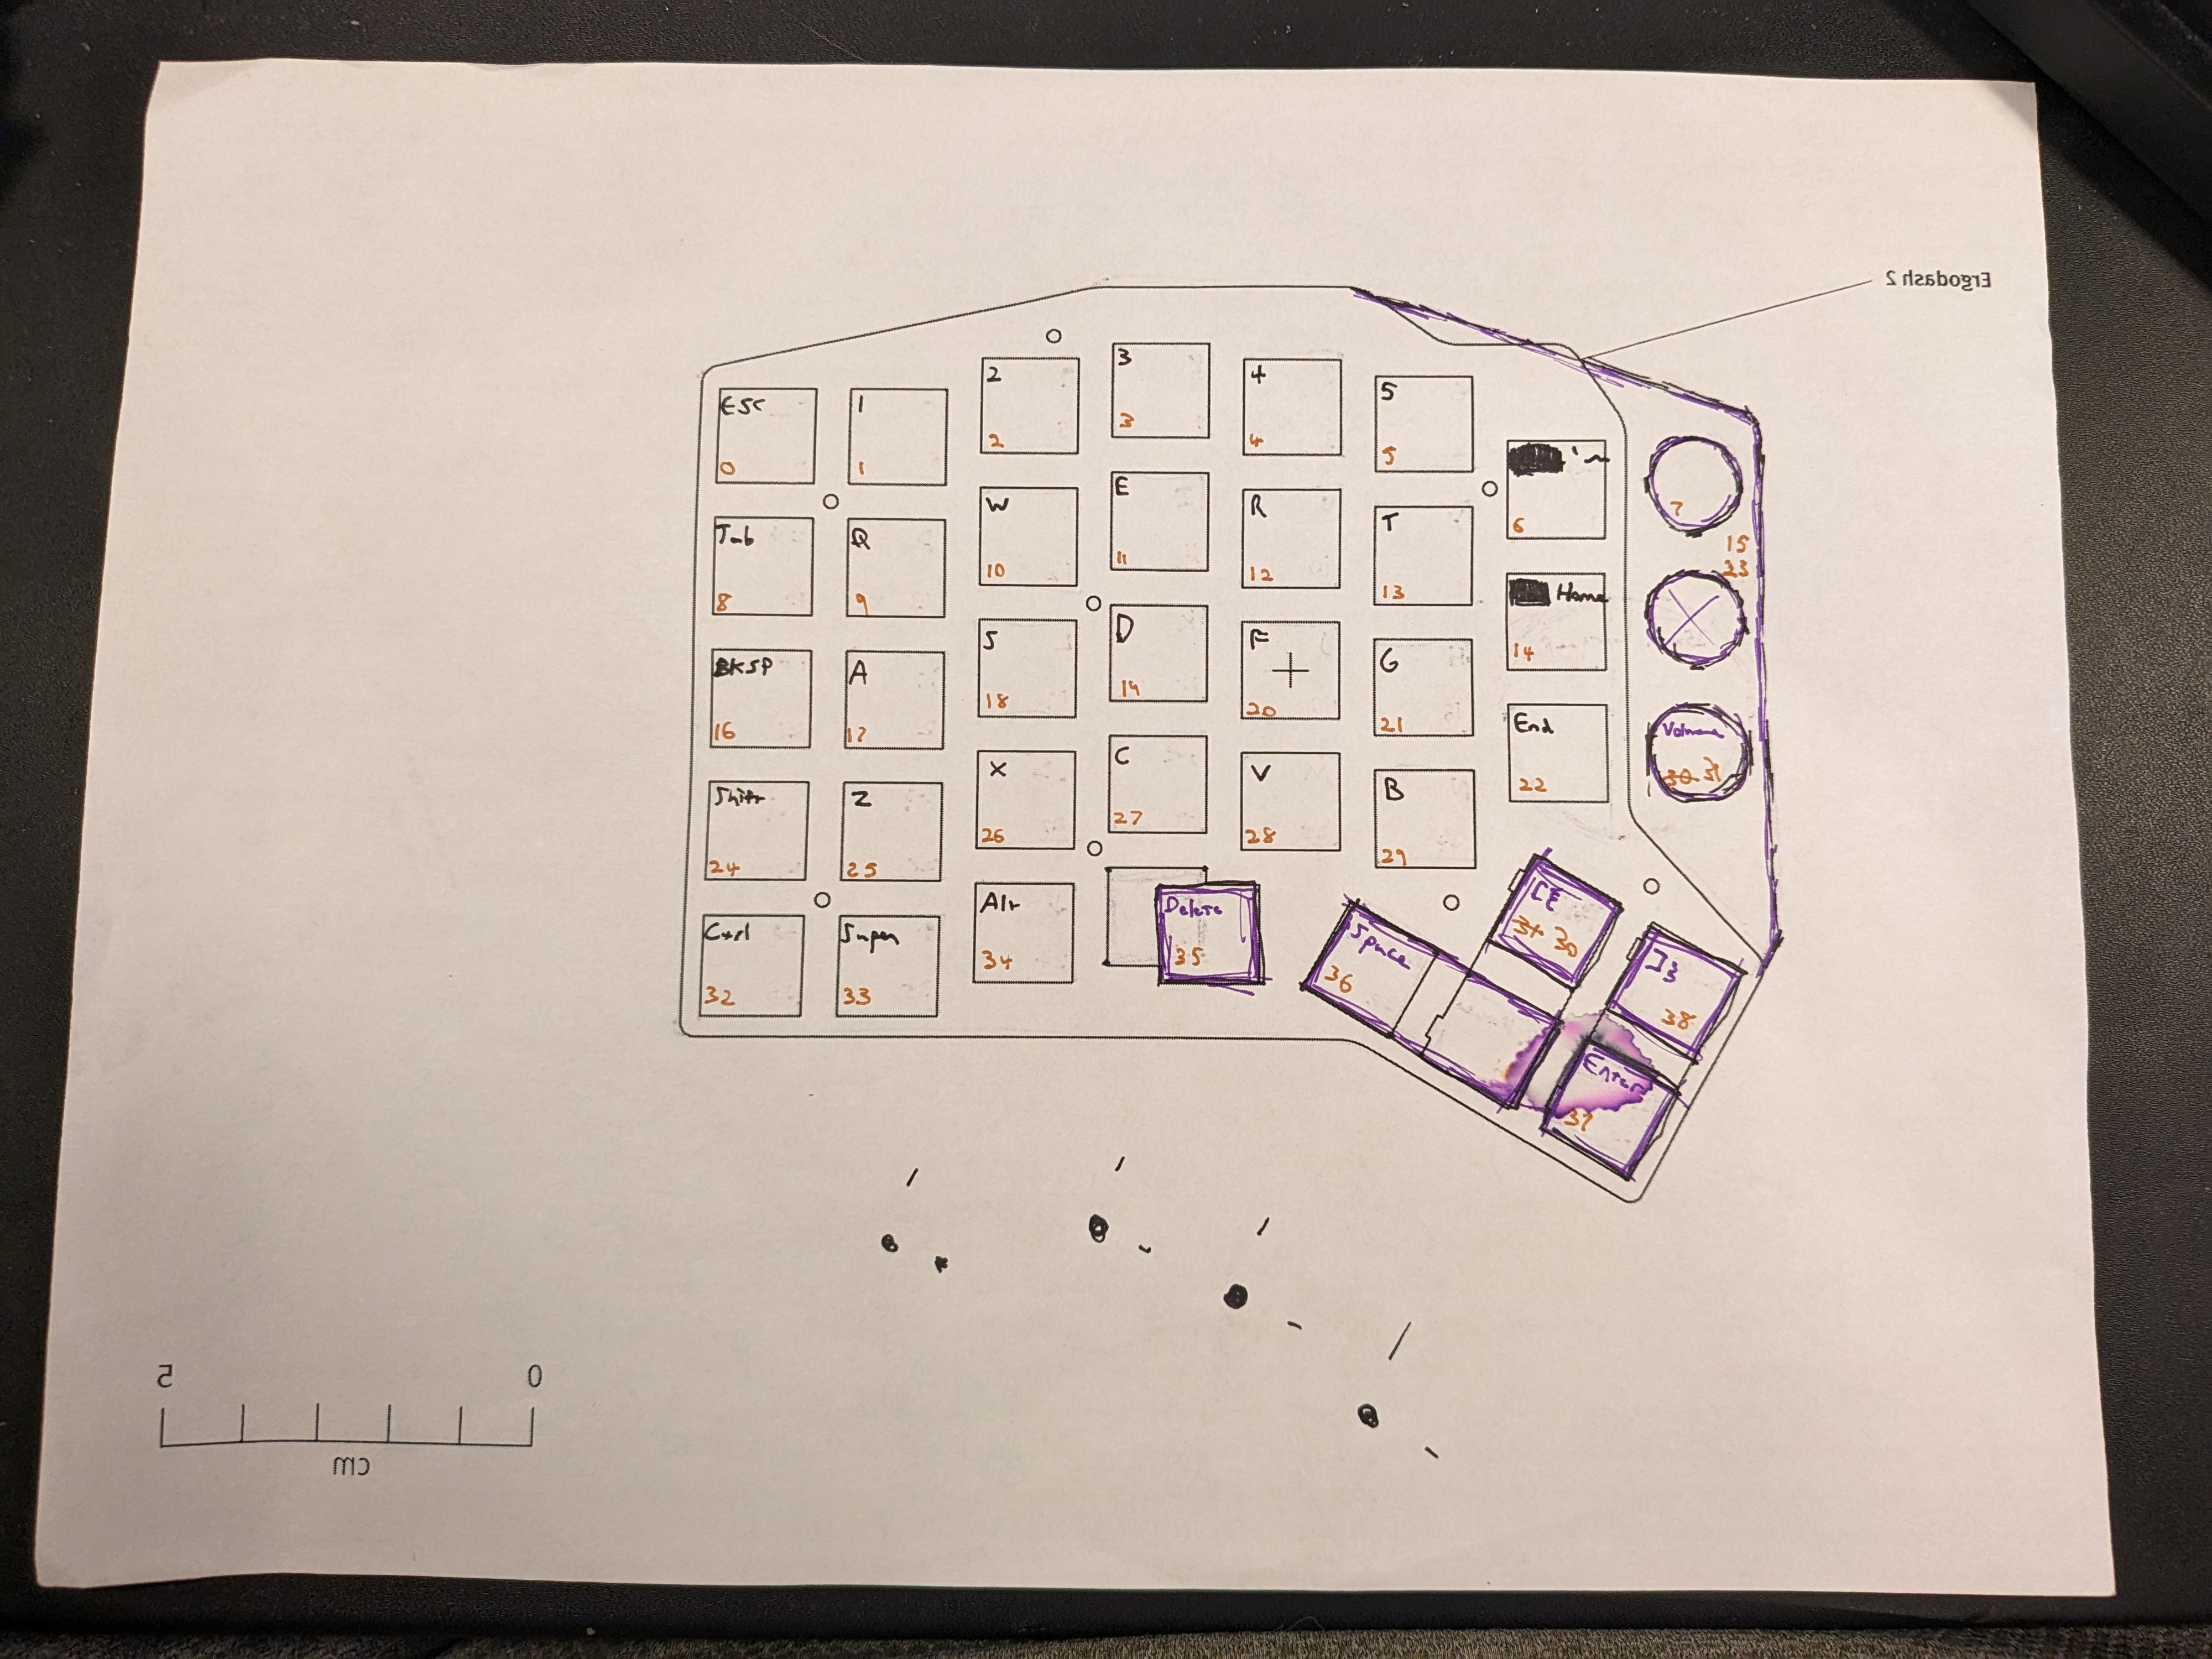 Ergodash 2
ESC
0
1
1
2
2
3
3
4
4
5
5
`~
6
7
Tab
8
Q
9
W
10
E
11
R
12
T
13
Home
14
15
23
BKSP
16
A
17
S
18
D
19
F
20
G
21
End
22
Volume
30 31
Shift
24
Z
25
X
26
C
27
V
28
B
29
Ctrl
32
Super
33
Alt
34
Delete
35
Space
36
30
38
Enter
37
5 0
cm